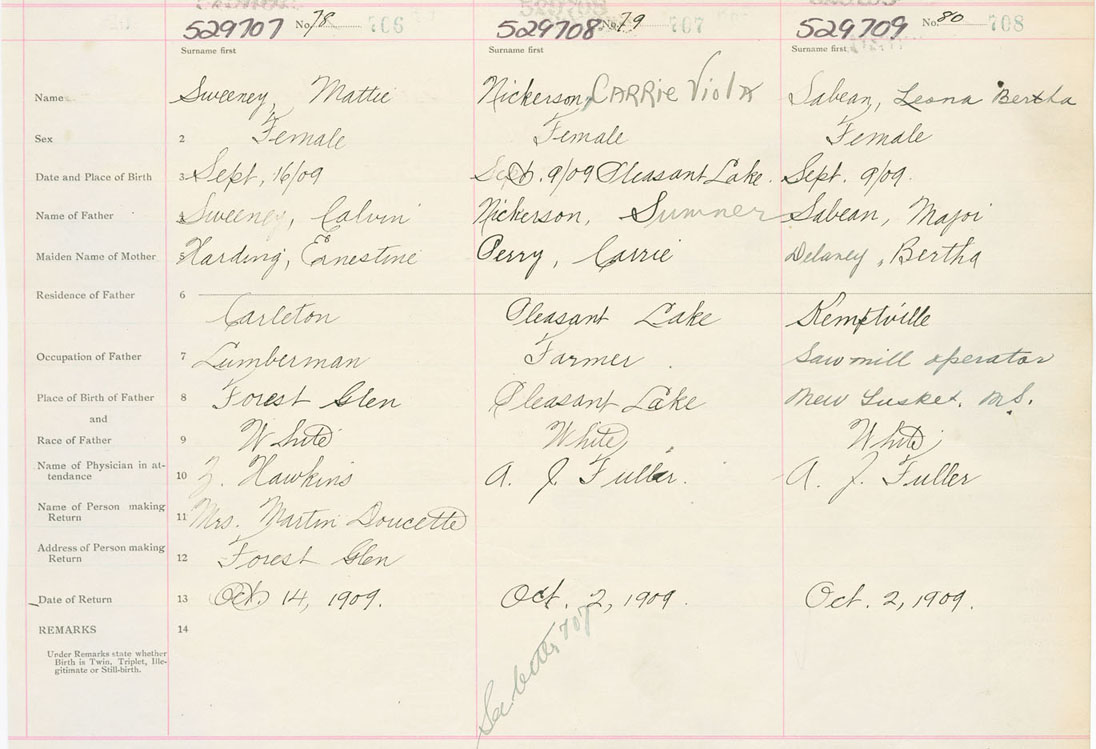 529707 No. 78 706
529708 No. 79 707
529709 No. 80 708
Surname first Surname first Surname first
Name Sweeney, Mattie Nickerson, CARRie Viola Sabean, Leona Bertha
Sex 2 Female Female Female
Date and Place of Birth 3 Sept, 16/09 Sept. 9/09 Pleasant Lake. Sept. 9/09.
Name of Father 4 Sweeney, Calvin Nickerson, Sumner Sabean, Major
Maiden Name of Mother 5 Harding, Ernestine Perry, Carrie Delaney, Bertha
Residence of Father 6
Carleton Pleasant Lake Kemptville
Occupation of Father 7 Lumberman Farmer Sawmill operator
Place of Birth of Father 8 Forest Glen Pleasant Lake New Tusket. N.S.
and
Race of Father 9 White White White
Name of Physician in at-
tendance 10 Hawkins A. J. Fuller. A. J. Fuller
Name of Person making
Return 11 Mrs. Martin Doucette
Address of Person making
Return 12 Forest Glen
Date of Return 13 Oct. 14, 1909. Oct. 2, 1909. Oct. 2, 1909.
REMARKS 14
Under Remarks state whether
Birth is Twin, Triplet, Ille-
gitimate or Still-birth.
See letter 707